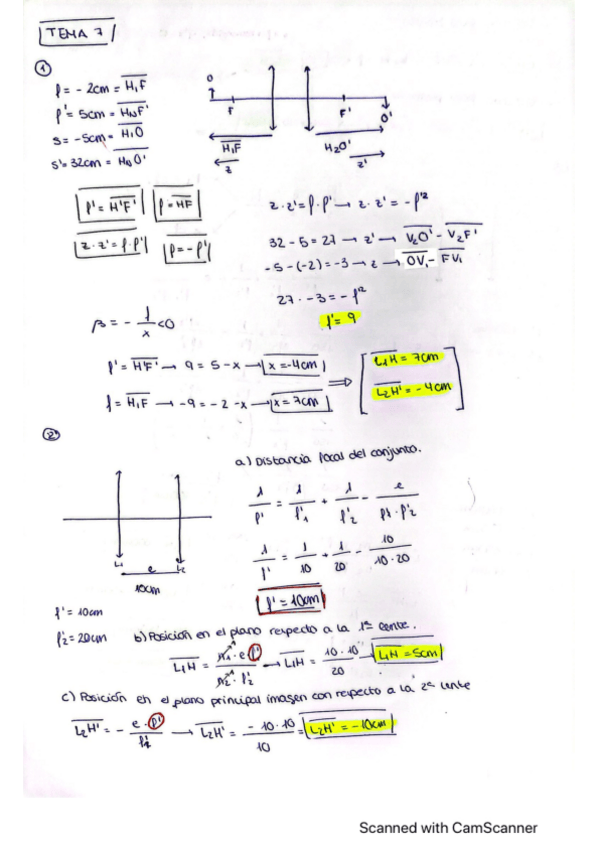 TEMA 7
①
f = - 2cm = H₁F
f' = 5cm = HₙF'
s = -5cm = H₁O
s' = 32cm = HₙO'
O
F
F'
O'
H₁F
H₂O'
z
z'
f' = H'F'
f = HF
z · z' = f · f'
f = - f'
z · z' = f · f' → z · z' = - f'²
32 - 5 = 27 → z' → V₂O' - V₂F'
-5 - (-2) = -3 → z → OV₁ - FV₁
27 · -3 = - f'²
f' = 9
β = - f/x < 0
f' = H'F' → 9 = 5 - x → x = -4cm
f = H₁F → -9 = -2 - x → x = 7cm
⇒
L₁H = 7cm
L₂H' = -4cm
②
a) Distancia focal del conjunto.
1/f' = 1/f'₁ + 1/f'₂ - e/f'₁·f'₂
1/f' = 1/10 + 1/20 - 10/10·20
f' = 10cm
L₁
e
L₂
10cm
f' = 10cm
f'₂ = 20cm
b) Posición en el plano respecto a la 1ª lente.
L₁H = n₁·e·f'/n₂·f'₂ → L₁H = 10·10/20 → L₁H = 5cm
c) Posición en el plano principal imagen con respecto a la 2ª lente
L₂H' = - e·f'/f'₁ → L₂H' = -10·10/10 = L₂H' = -10cm
Scanned with CamScanner